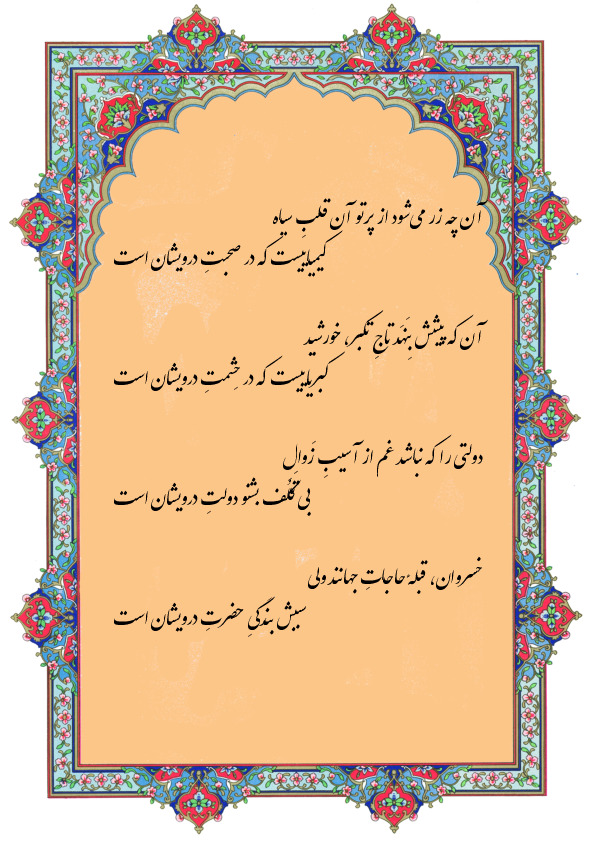 آن چه زر می‌شود از پرتو آن قلبِ سیاه
کیمیاییست که در صحبتِ درویشان است
آن که پیشش بِنَهَد تاجِ تکبر، خورشید
کبریاییست که در حِشمتِ درویشان است
دولتی را که نباشد غم از آسیبِ زَوالِ
بی تَکَلُّف بشنو دولتِ درویشان است
خسروان، قبلهٔ حاجاتِ جهانند ولی
سببش بندگیِ حضرتِ درویشان است